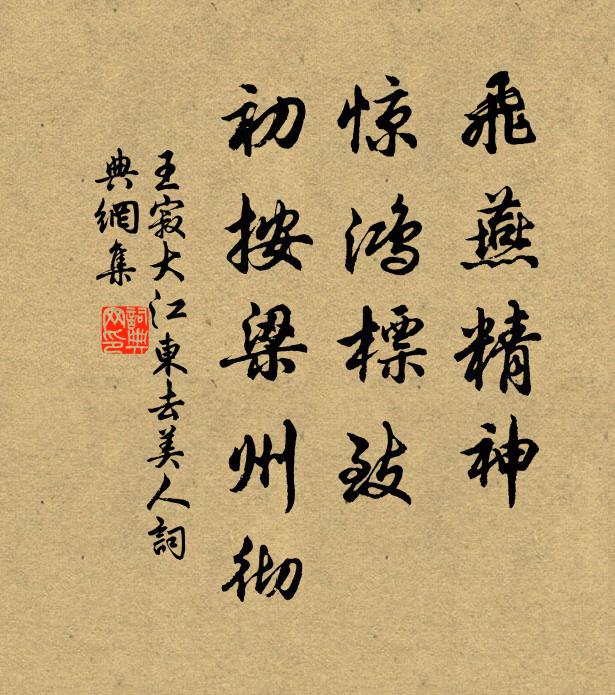 飛燕精神
惊鴻標致
初按梁州彻
王寂大江東去美人詞
典網集
詞典
网印